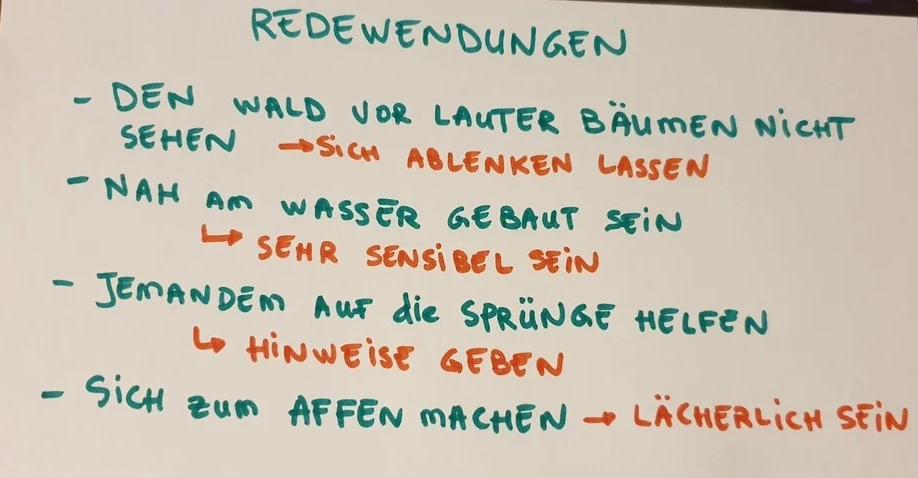 REDEWENDUNGEN
- DEN WALD VOR LAUTER BÄUMEN NICHT
SEHEN → SICH ABLENKEN LASSEN
- NAH AM WASSER GEBAUT SEIN
↳ SEHR SENSIBEL SEIN
- JEMANDEM AUF die SPRÜNGE HELFEN
↳ HINWEISE GEBEN
- SICH ZUM AFFEN MACHEN → LÄCHERLICH SEIN